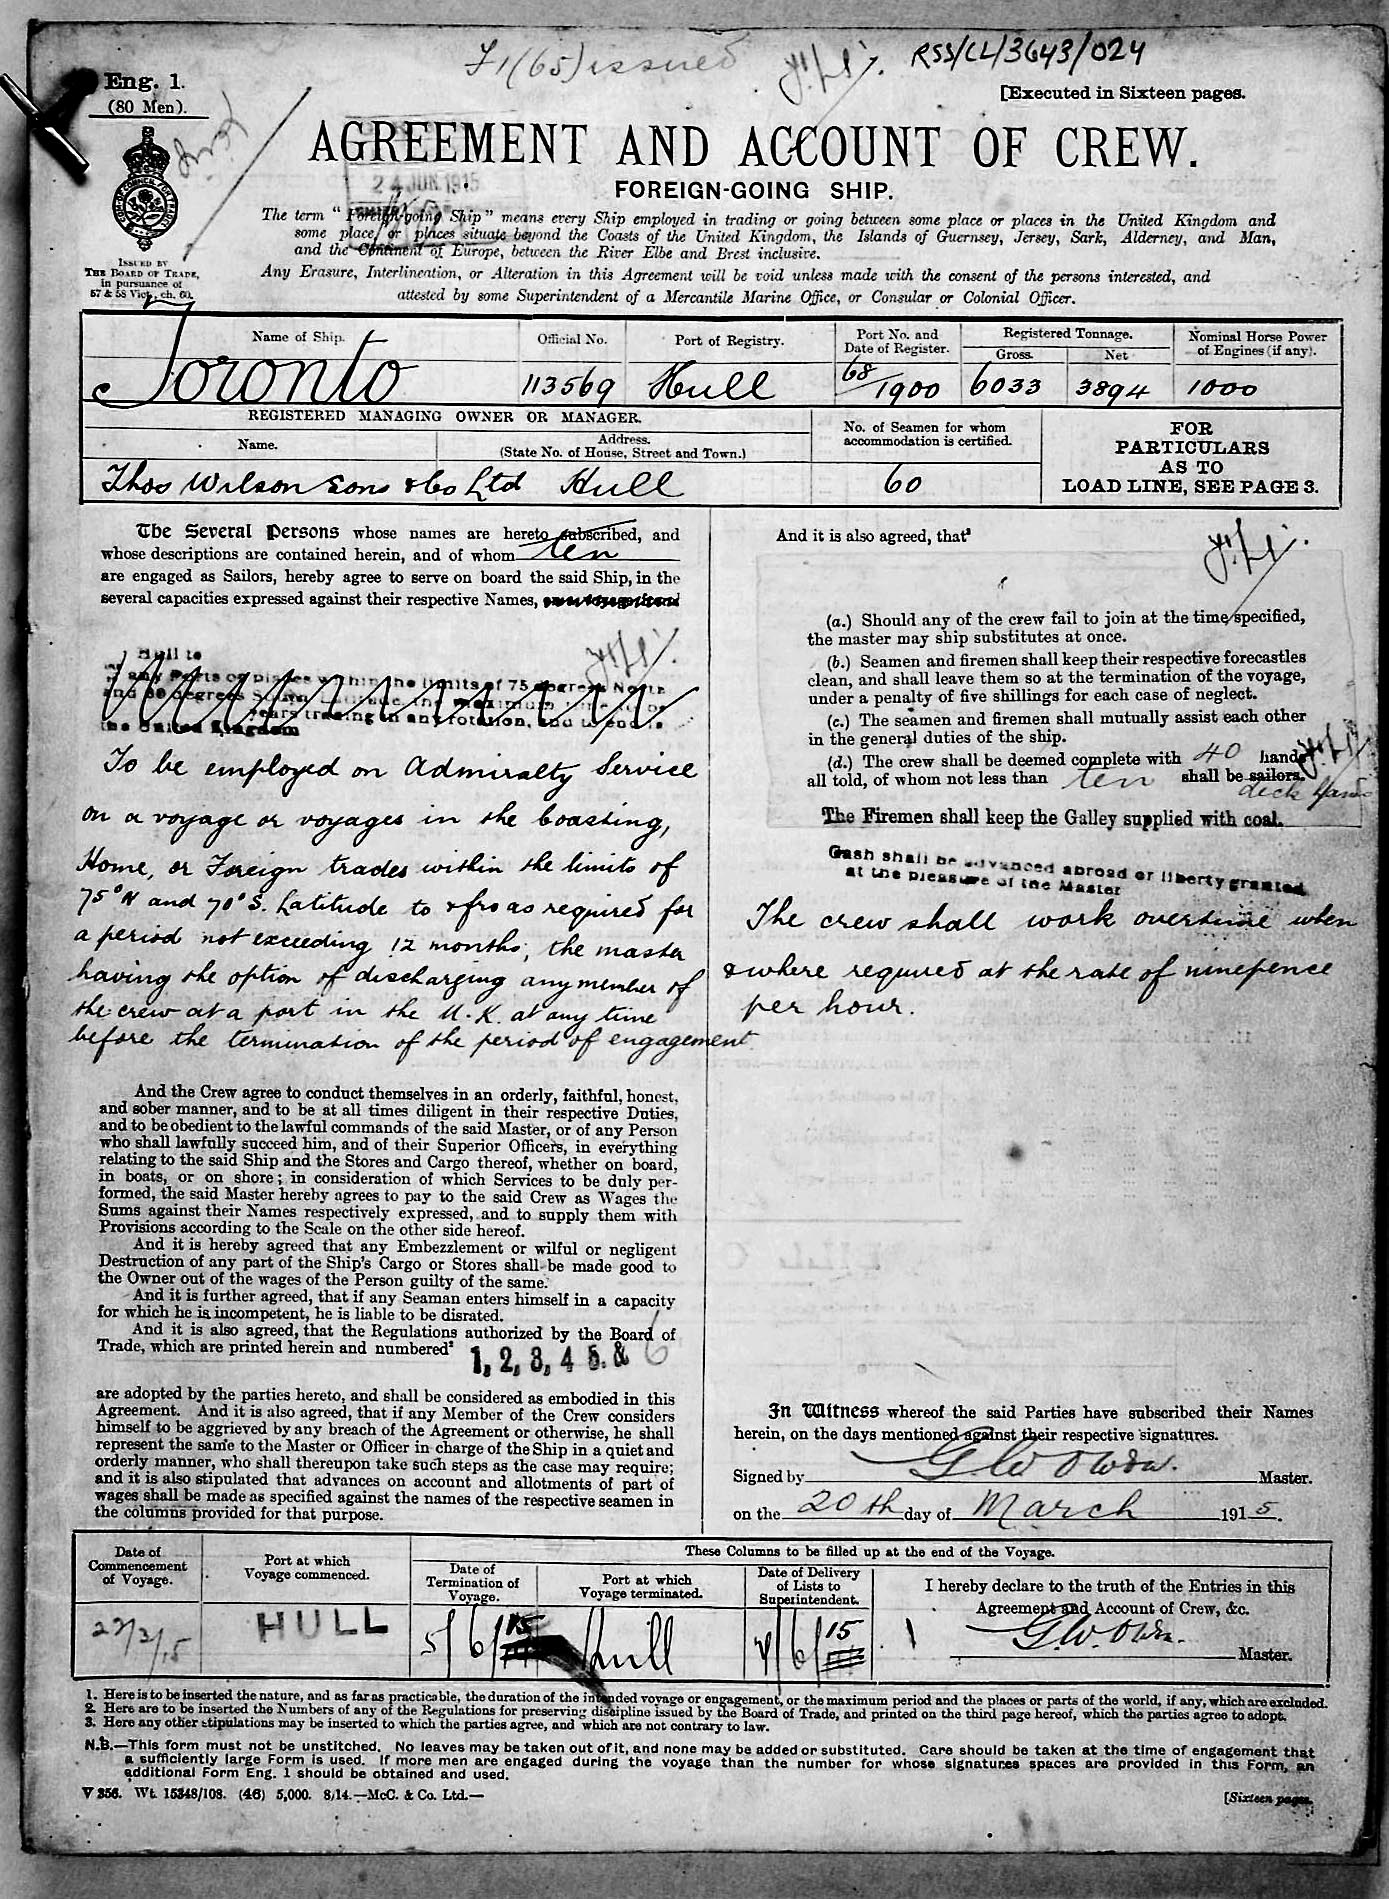 F1(65) issued
RSS/CL/3643/024
Eng. 1.
(80 Men).
[Executed in Sixteen pages.
AGREEMENT AND ACCOUNT OF CREW.
24 JUN 1915
FOREIGN-GOING SHIP.
The term "Foreign-going Ship" means every Ship employed in trading or going between some place or places in the United Kingdom and
some place or places situate beyond the Coasts of the United Kingdom, the Islands of Guernsey, Jersey, Sark, Alderney, and Man,
and the Continent of Europe, between the River Elbe and Brest inclusive.
Any Erasure, Interlineation, or Alteration in this Agreement will be void unless made with the consent of the persons interested, and
attested by some Superintendent of a Mercantile Marine Office, or Consular or Colonial Officer.
ISSUED BY
THE BOARD OF TRADE,
in pursuance of
57 & 58 Vict., ch. 60.
Name of Ship.
Official No.
Port of Registry.
Port No. and
Date of Register.
Registered Tonnage.
Gross.
Net
Nominal Horse Power
of Engines (if any).
Toronto
113569
Hull
68/1900
6033
3894
1000
REGISTERED MANAGING OWNER OR MANAGER.
Name.
Address.
(State No. of House, Street and Town.)
No. of Seamen for whom
accommodation is certified.
FOR
PARTICULARS
AS TO
LOAD LINE, SEE PAGE 3.
Thos Wilson Sons & Co Ltd Hull
60
The Several Persons whose names are hereto subscribed, and
whose descriptions are contained herein, and of whom ten
are engaged as Sailors, hereby agree to serve on board the said Ship, in the
several capacities expressed against their respective Names,
Hull to
any Ports or places within the limits of 75 degrees North
and 60 degrees South Latitude, the maximum time to be
years trading in any rotation, and to end in
the United Kingdom
To be employed on Admiralty Service
on a voyage or voyages in the Coasting,
Home, or Foreign trades within the limits of
75°N and 70°S. Latitude to & fro as required for
a period not exceeding 12 months, the master
having the option of discharging any member of
the crew at a port in the U.K. at any time
before the termination of the period of engagement
And the Crew agree to conduct themselves in an orderly, faithful, honest,
and sober manner, and to be at all times diligent in their respective Duties,
and to be obedient to the lawful commands of the said Master, or of any Person
who shall lawfully succeed him, and of their Superior Officers, in everything
relating to the said Ship and the Stores and Cargo thereof, whether on board,
in boats, or on shore; in consideration of which Services to be duly per-
formed, the said Master hereby agrees to pay to the said Crew as Wages the
Sums against their Names respectively expressed, and to supply them with
Provisions according to the Scale on the other side hereof.
And it is hereby agreed that any Embezzlement or wilful or negligent
Destruction of any part of the Ship's Cargo or Stores shall be made good to
the Owner out of the wages of the Person guilty of the same.
And it is further agreed, that if any Seaman enters himself in a capacity
for which he is incompetent, he is liable to be disrated.
And it is also agreed, that the Regulations authorized by the Board of
Trade, which are printed herein and numbered² 1, 2, 3, 4 5. & 6
are adopted by the parties hereto, and shall be considered as embodied in this
Agreement. And it is also agreed, that if any Member of the Crew considers
himself to be aggrieved by any breach of the Agreement or otherwise, he shall
represent the same to the Master or Officer in charge of the Ship in a quiet and
orderly manner, who shall thereupon take such steps as the case may require;
and it is also stipulated that advances on account and allotments of part of
wages shall be made as specified against the names of the respective seamen in
the columns provided for that purpose.
And it is also agreed, that³
(a.) Should any of the crew fail to join at the time specified,
the master may ship substitutes at once.
(b.) Seamen and firemen shall keep their respective forecastles
clean, and shall leave them so at the termination of the voyage,
under a penalty of five shillings for each case of neglect.
(c.) The seamen and firemen shall mutually assist each other
in the general duties of the ship.
(d.) The crew shall be deemed complete with 40 hands
all told, of whom not less than ten shall be sailors.
deck hands
The Firemen shall keep the Galley supplied with coal.
Cash shall be advanced abroad or liberty granted
at the pleasure of the Master
The crew shall work overtime when
& where required at the rate of ninepence
per hour.
In Witness whereof the said Parties have subscribed their Names
herein, on the days mentioned against their respective signatures.
Signed by G W Owen. Master.
on the 20th day of March 1915.
Date of
Commencement
of Voyage.
Port at which
Voyage commenced.
These Columns to be filled up at the end of the Voyage.
Date of
Termination of
Voyage.
Port at which
Voyage terminated.
Date of Delivery
of Lists to
Superintendent.
I hereby declare to the truth of the Entries in this
Agreement and Account of Crew, &c.
22/3/15
HULL
5/6/15
Hull
7/6/15
G.W. Owen. Master.
1. Here is to be inserted the nature, and as far as practicable, the duration of the intended voyage or engagement, or the maximum period and the places or parts of the world, if any, which are excluded.
2. Here are to be inserted the Numbers of any of the Regulations for preserving discipline issued by the Board of Trade, and printed on the third page hereof, which the parties agree to adopt.
3. Here any other stipulations may be inserted to which the parties agree, and which are not contrary to law.
N.B.—This form must not be unstitched. No leaves may be taken out of it, and none may be added or substituted. Care should be taken at the time of engagement that
a sufficiently large Form is used. If more men are engaged during the voyage than the number for whose signatures spaces are provided in this Form, an
additional Form Eng. 1 should be obtained and used.
V 356. Wt. 15348/108. (46) 5,000. 8/14.—McC. & Co. Ltd.—
[Sixteen pages.